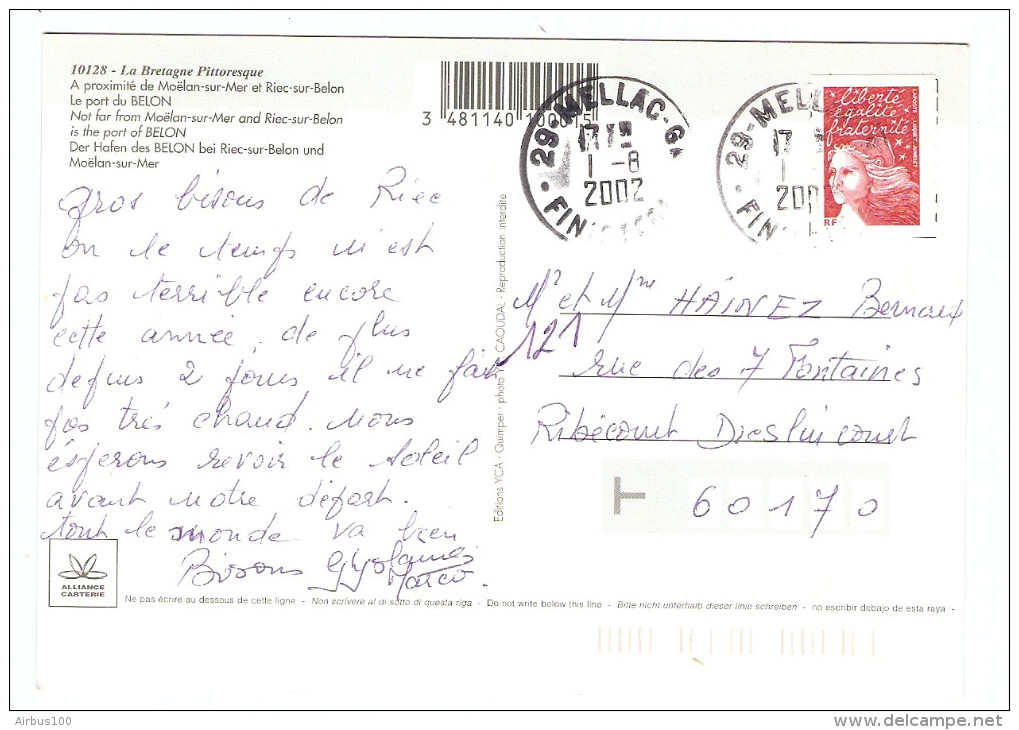 10128 - La Bretagne Pittoresque
A proximité de Moëlan-sur-Mer et Riec-sur-Belon
Le port du BELON
Not far from Moëlan-sur-Mer and Riec-sur-Belon
is the port of BELON
Der Hafen des BELON bei Riec-sur-Belon und
Moëlan-sur-Mer
3 481140 100015
29-MELLAC-G
17H
1 -8
2002
FIN
29-MELL
17
1
200
FIN
liberté
égalité
fraternité
RF
gros bisous de Riec
ou le temps n'est
pas terrible encore
cette année. de plus
depuis 2 jours il ne fait
pas très chaud. Nous
éspérons revoir le soleil
avant notre départ.
tout le monde va bien
Bisous
Marco.
Editions YCA - Quimper - photo Y.R. CAOUDAL - Reproduction interdite
Mr et Mme HAINEZ Bernard
121 rue des 7 Fontaines
Ribécourt Dreslincourt
60170
ALLIANCE
CARTERIE
Ne pas écrire au dessous de cette ligne - Non scrivere al di sotto di questa riga - Do not write below this line - Bitte nicht unterhalb dieser linie schreiben - no escribir debajo de esta raya -
Airbus100
delcampe.net